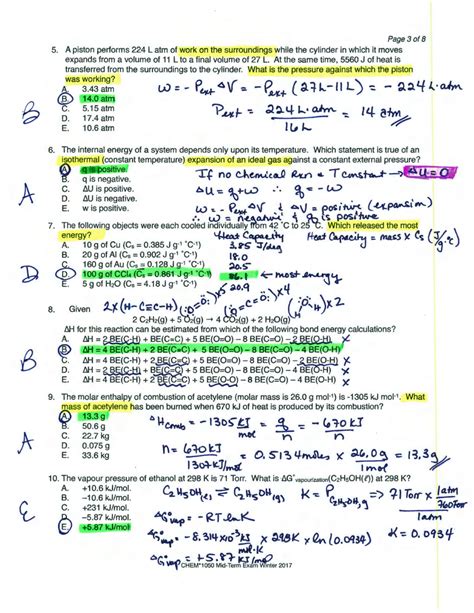 Page 3 of 8
5. A piston performs 224 L atm of work on the surroundings while the cylinder in which it moves
expands from a volume of 11 L to a final volume of 27 L. At the same time, 5560 J of heat is
transferred from the surroundings to the cylinder. What is the pressure against which the piston
was working?
A. 3.43 atm
B. 14.0 atm
C. 5.15 atm
D. 17.4 atm
E. 10.6 atm
w = - Pext ΔV = - Pext (27L-11L) = - 224 L·atm
Pext = 224 L·atm / 16 L = 14 atm
B
6. The internal energy of a system depends only upon its temperature. Which statement is true of an
isothermal (constant temperature) expansion of an ideal gas against a constant external pressure?
A. q is positive
B. q is negative.
C. ΔU is positive.
D. ΔU is negative.
E. w is positive.
If no chemical rxn & T constant → ΔU = 0
ΔU = q + w ∴ q = - w
w = - Pext ΔV & ΔV = positive (expansion)
∴ w = negative & q is positive
A
7. The following objects were each cooled individually from 42 °C to 25 °C. Which released the most
energy?
Heat Capacity Heat Capacity = mass x Cs (J/g·°C)
A. 10 g of Cu (Cs = 0.385 J g-1 °C-1) 3.85 J/deg
B. 20 g of Al (Cs = 0.902 J g-1 °C-1) 18.0
C. 160 g of Au (Cs = 0.128 J g-1 °C-1) 20.5
D. 100 g of CCl4 (Cs = 0.861 J g-1 °C-1) 86.1 ← most energy
E. 5 g of H2O (Cs = 4.18 J g-1 °C-1) 20.9
D
8. Given 2x(H-C≡C-H) x5 x4 (H H) x2
2 C2H2(g) + 5 O2(g) → 4 CO2(g) + 2 H2O(g)
ΔH for this reaction can be estimated from which of the following bond energy calculations?
A. ΔH = 2 BE(C-H) + BE(C≡C) + 5 BE(O=O) – 8 BE(C=O) – 2 BE(O-H) X
B. ΔH = 4 BE(C-H) + 2 BE(C≡C) + 5 BE(O=O) – 8 BE(C=O) – 4 BE(O-H)
C. ΔH = 4 BE(C-H) + 2 BE(C=C) + 5 BE(O=O) – 8 BE(C=O) – 4 BE(O-H) X
D. ΔH = 2 BE(C-H) + BE(C=C) + 5 BE(O=O) – 8 BE(C=O) – 2 BE(O-H) X
E. ΔH = 4 BE(C-H) + 2 BE(C≡C) + 5 BE(O-O) – 8 BE(C=O) – 4 BE(O-H) X
B
9. The molar enthalpy of combustion of acetylene (molar mass is 26.0 g mol-1) is -1305 kJ mol-1. What
mass of acetylene has been burned when 670 kJ of heat is produced by its combustion?
A. 13.3 g
B. 50.6 g
C. 22.7 kg
D. 0.075 g
E. 33.7 g
ΔHcomb = -1305 kJ / mol = q / n = -670 kJ / n
n = 670 kJ = 0.513 mol x 26.0 g / 1 mol = 13.3 g
A
10. The vapour pressure of ethanol at 298 K is 71 Torr. What is ΔG°vaporization(C2H5OH(ℓ)) at 298 K?
A. +10.6 kJ/mol.
B. –10.6 kJ/mol.
C. +231 kJ/mol.
D. –5.87 kJ/mol.
E. +5.87 kJ/mol
C2H5OH(l) ⇌ C2H5OH(g) K = P C2H5OH,g ⇒ 71 Torr x 1 atm / 760 Torr
ΔG°vap = - RT ln K K = 0.0934
ΔG°vap = - 8.314x10-3 kJ / mol·K x 298K x ln (0.0934)
ΔG°vap = + 5.87 kJ/mol
E
CHEM*1050 Mid-Term Exam Winter 2017